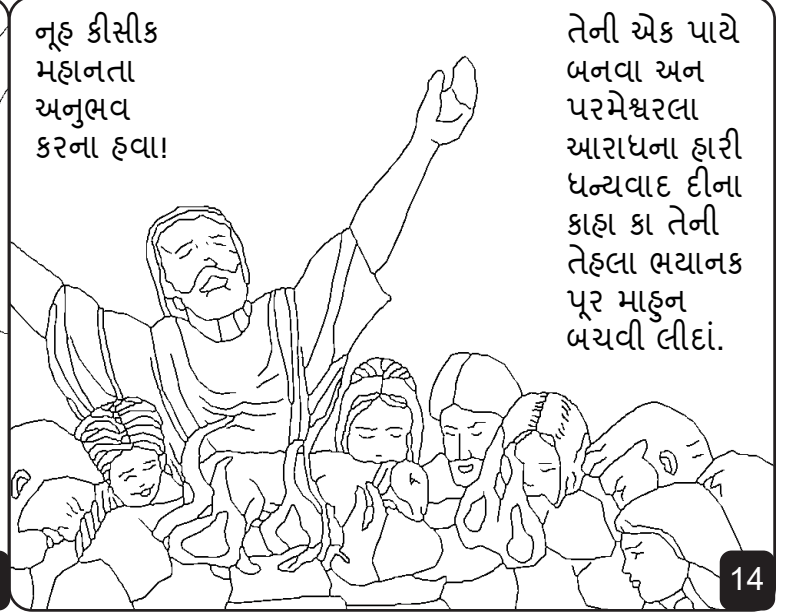 નૂહ કીસીક
મહાનતા
અનુભવ
કરના હવા!
તેની એક પાયે
બનવા અન
પરમેશ્વરલા
આરાધના હારી
ધન્યવાદ દીના
કાહા કા તેની
તેહલા ભયાનક
પૂર માહુન
બચવી લીદાં.
14